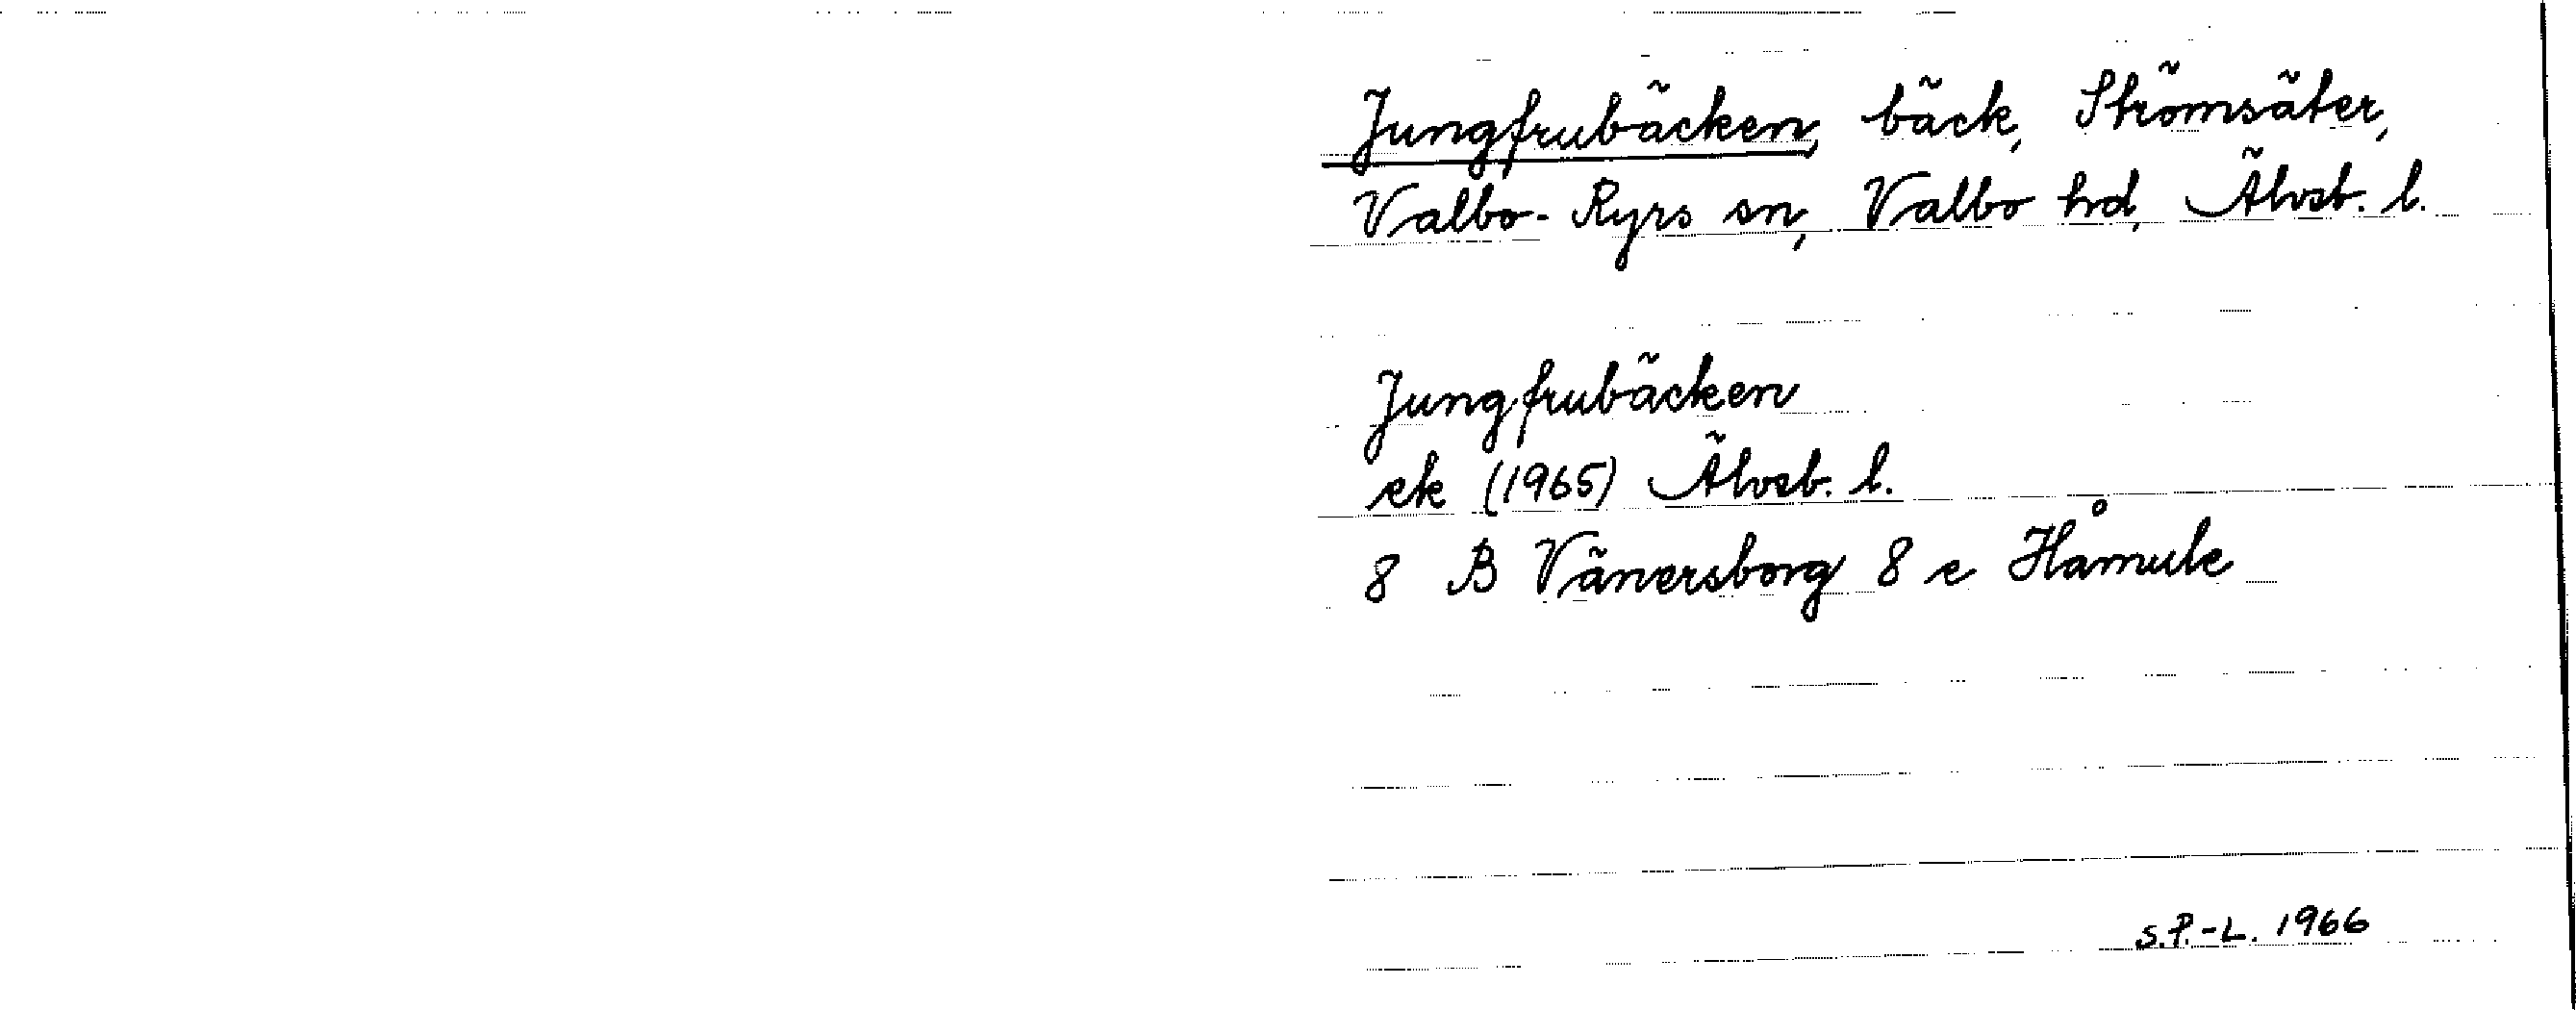 Jungfrubäcken, bäck, Strömsäter,
Valbo-Ryrs sn, Valbo hd, Älvsb. l.
Jungfrubäcken
ek (1965) Älvsb. l.
8 B Vänersborg 8 e Håmule
S.P.-L. 1966